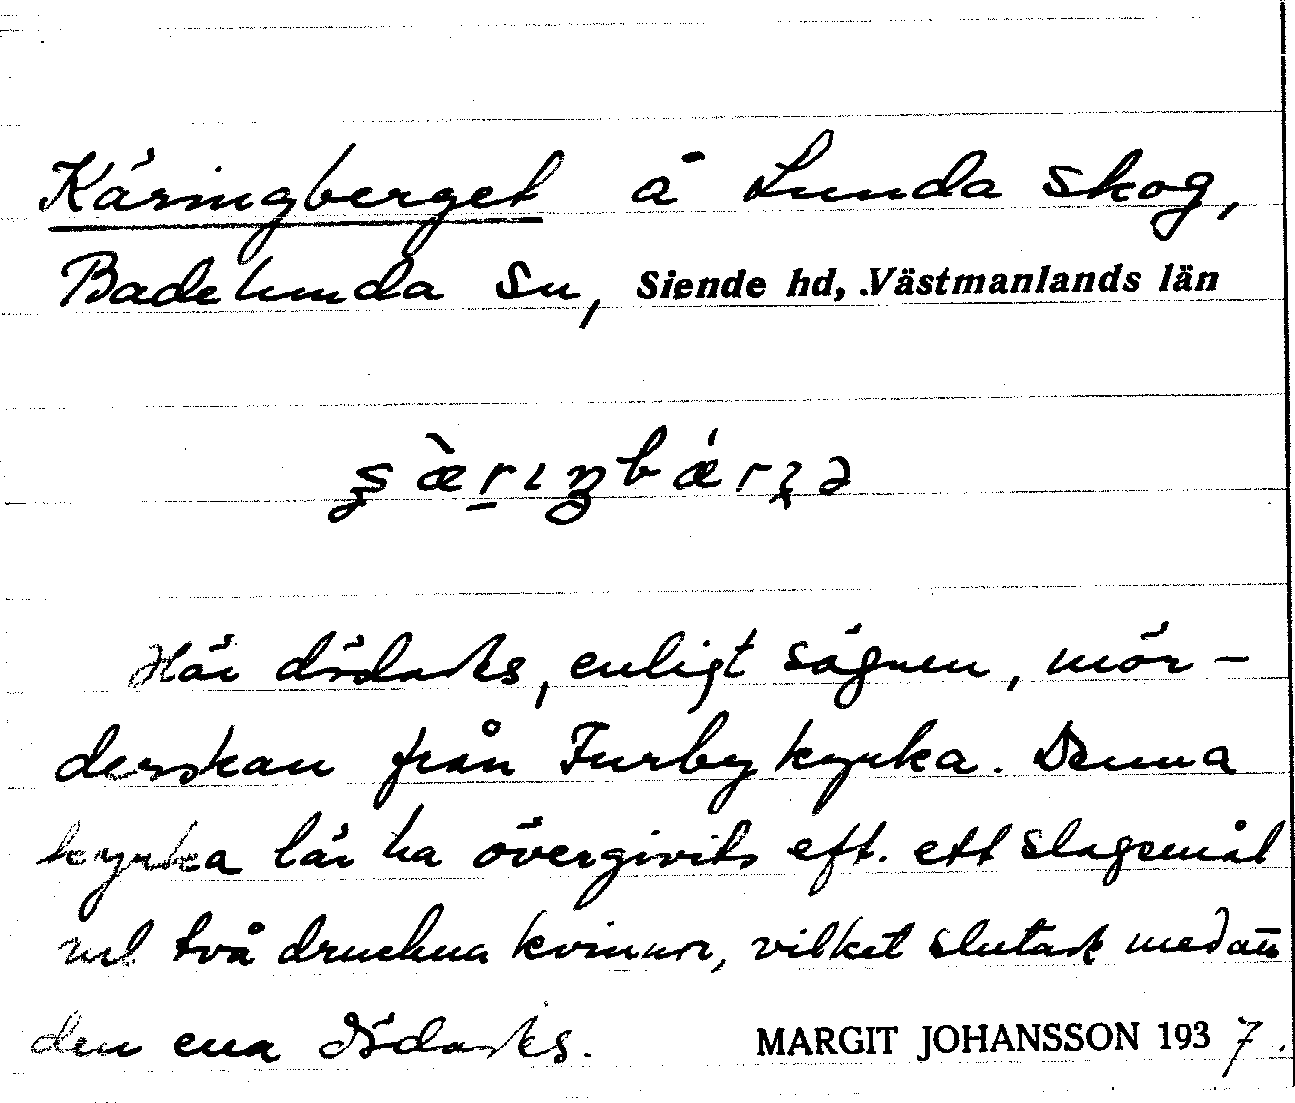 Käringberget å Lunda skog,
Badelunda sn, Siende hd, Västmanlands län
Här dödades, enligt sägnen, mör-
derskan från Furby kyrka. Denna
kyrka lär ha övergivits eft. ett slagsmål
ml två druckna kvinnor, vilket slutade med att
den ena dödades. MARGIT JOHANSSON 1937.